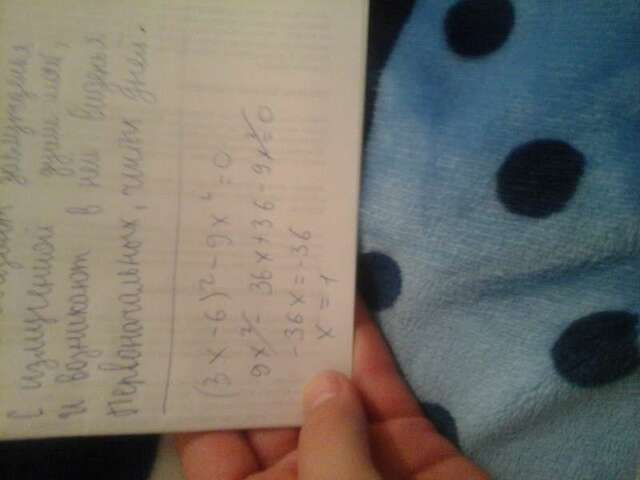 заблужденья
С измученной души моей,
И возникают в ней виденья
Первоначальных, чистых дней.
(3x-6)²-9x²=0
9x²-36x+36-9x²=0
-36x=-36
x=1